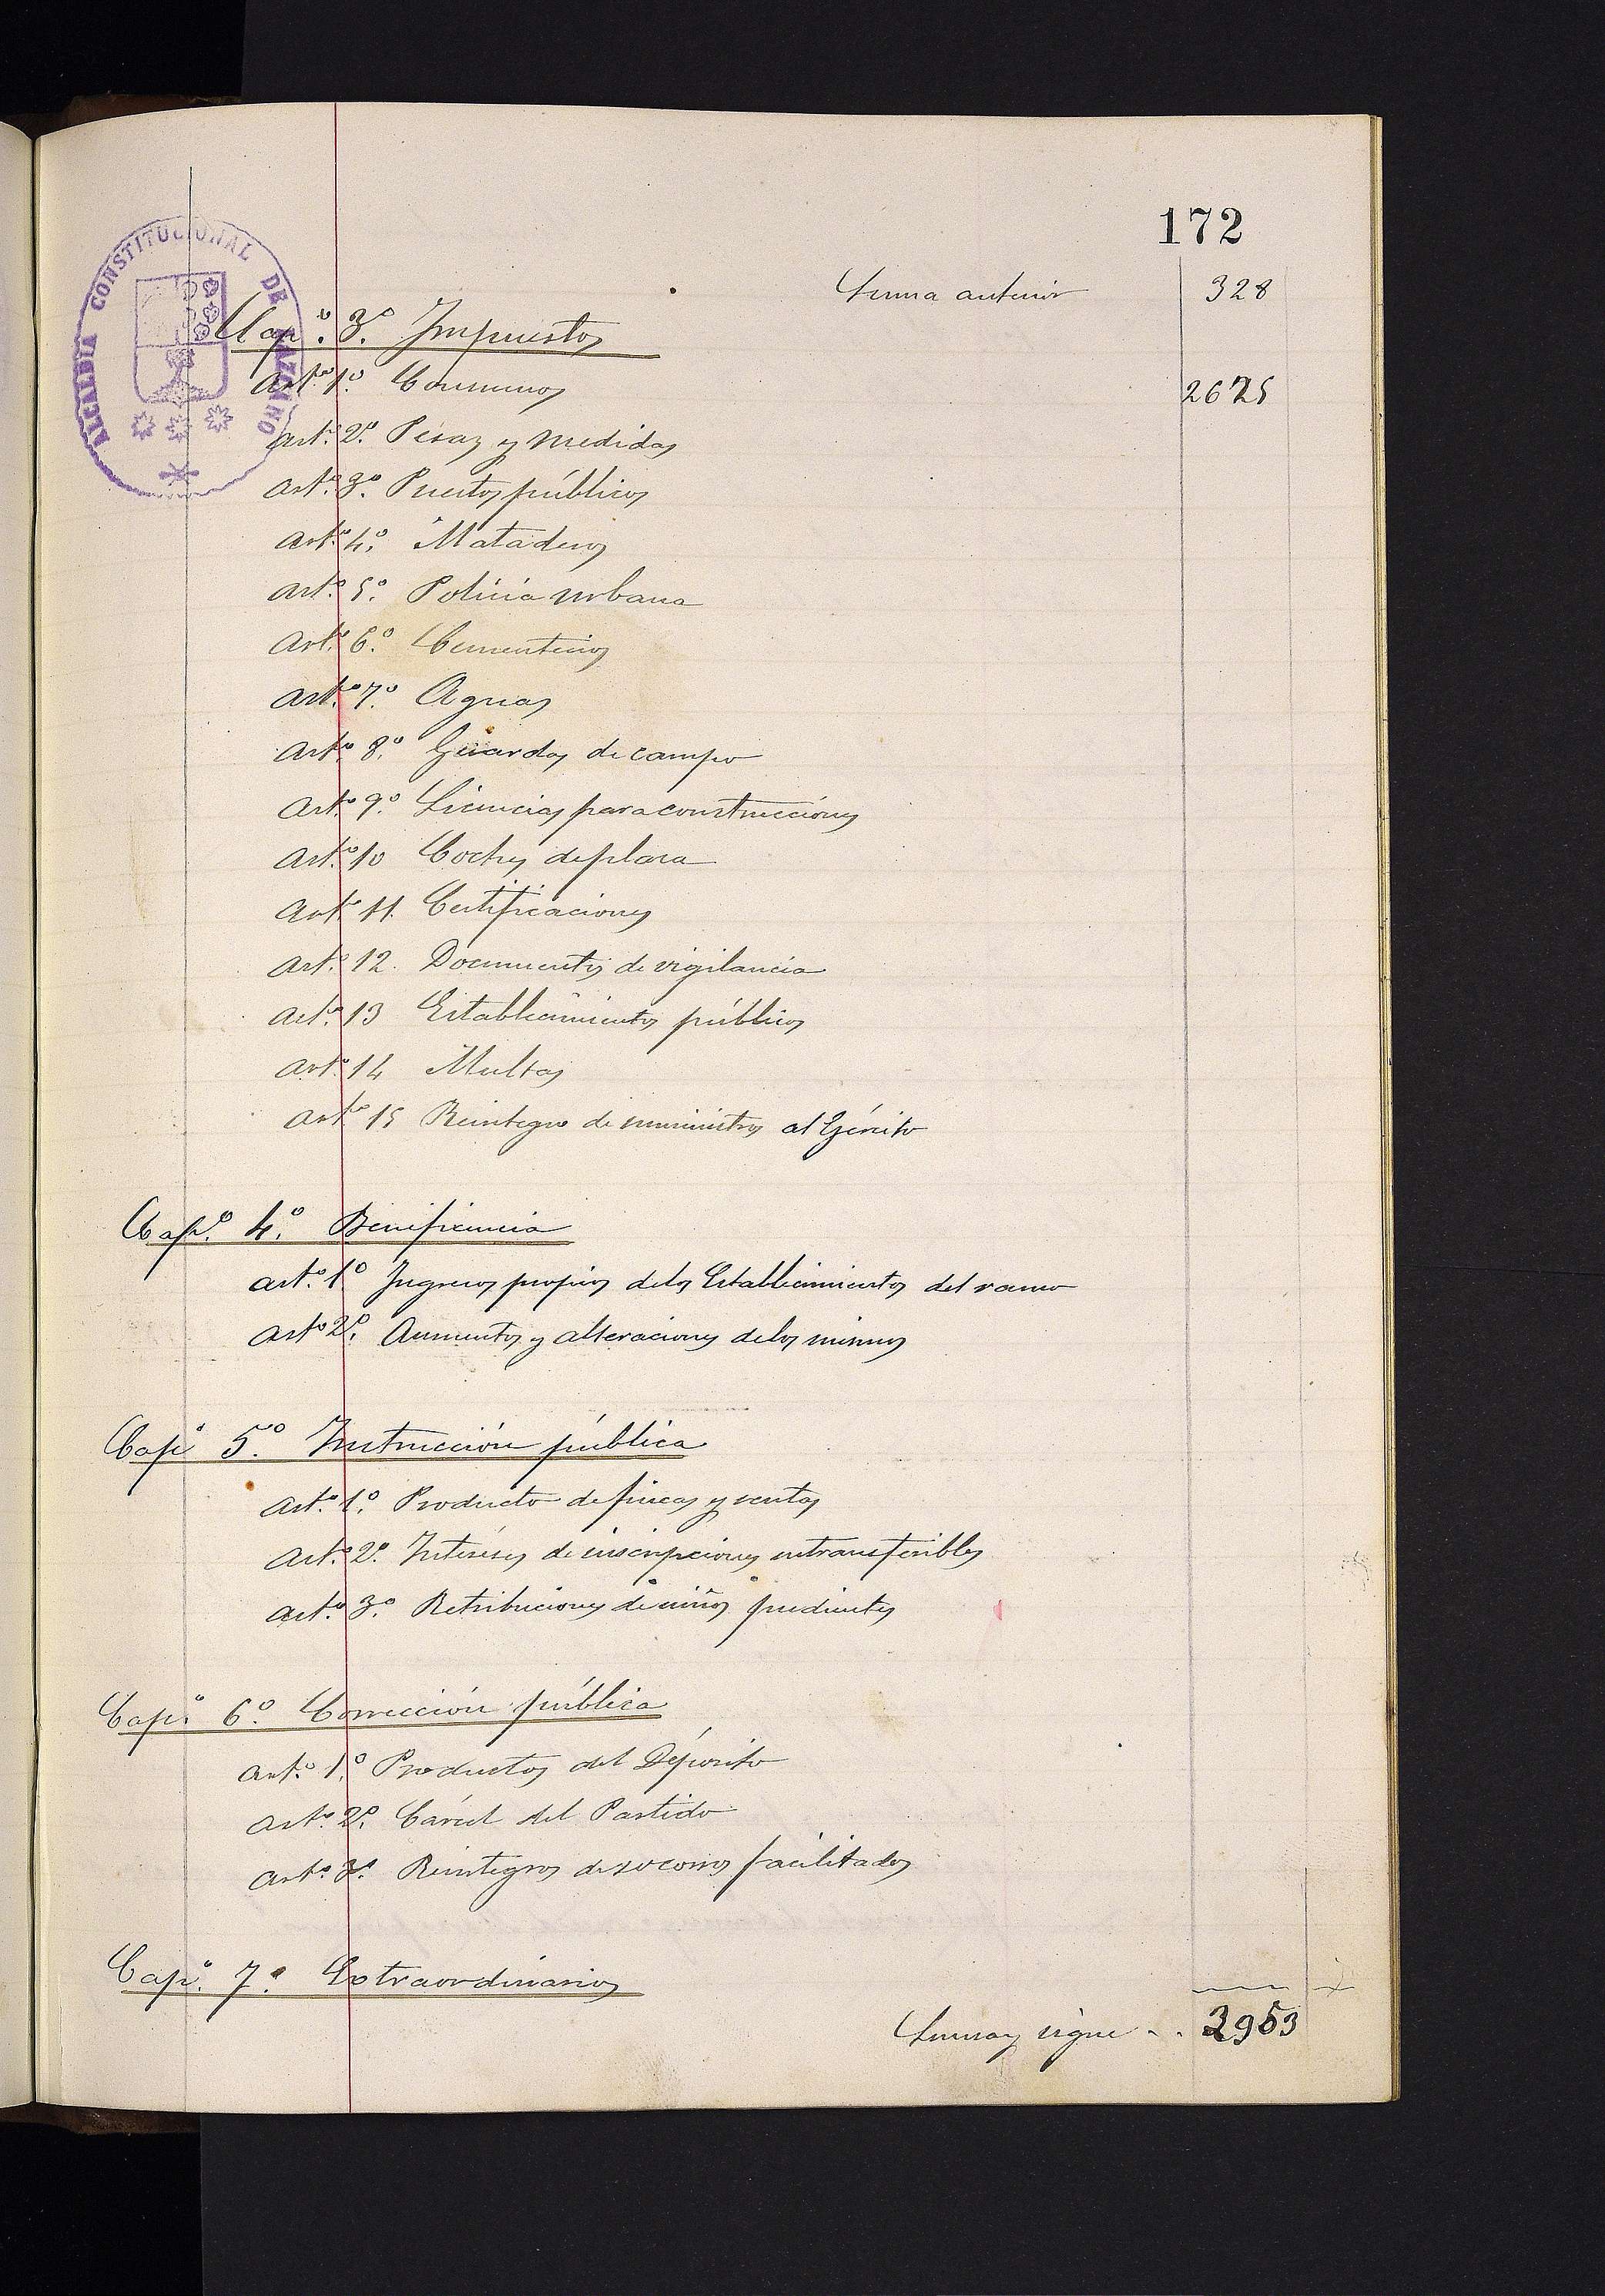 172
ALCALDIA CONSTITUCIONAL DE LAZCANO
Suma anterior 328
Cap.º 3.º Impuestos
Art.º 1.º Consumos 2625
Art.º 2.º Pesas y medidas
Art.º 3.º Puestos públicos
Art.º 4.º Mataderos
Art.º 5.º Policia urbana
Art.º 6.º Cementerios
Art.º 7.º Aguas
Art.º 8.º Guardas de campo
Art.º 9.º Licencias para construcciónes
Art.º 10 Coches de plaza
Art.º 11. Certificaciones
Art.º 12. Documentos de vigilancia
Art.º 13 Establecimientos públicos
Art.º 14 Multas
Art.º 15 Reintegro de suministros al Ejército
Cap.º 4.º Beneficencia
Art.º 1.º Ingresos propios de los Establecimientos del ramo
Art.º 2.º Aumentos y alteraciones de los mismos
Cap.º 5.º Instrucción pública
Art.º 1.º Producto de fincas y rentas
Art.º 2.º Intereses de inscripciones intransferibles
Art.º 3.º Retribuciones de niños pudientes
Cap.º 6.º Corrección pública
Art.º 1.º Productos del Depósito
Art.º 2.º Cárcel del Partido
Art.º 3.º Reintegros de socorros facilitados
Cap.º 7.º Extraordinarios
Suma y sigue . . 2953